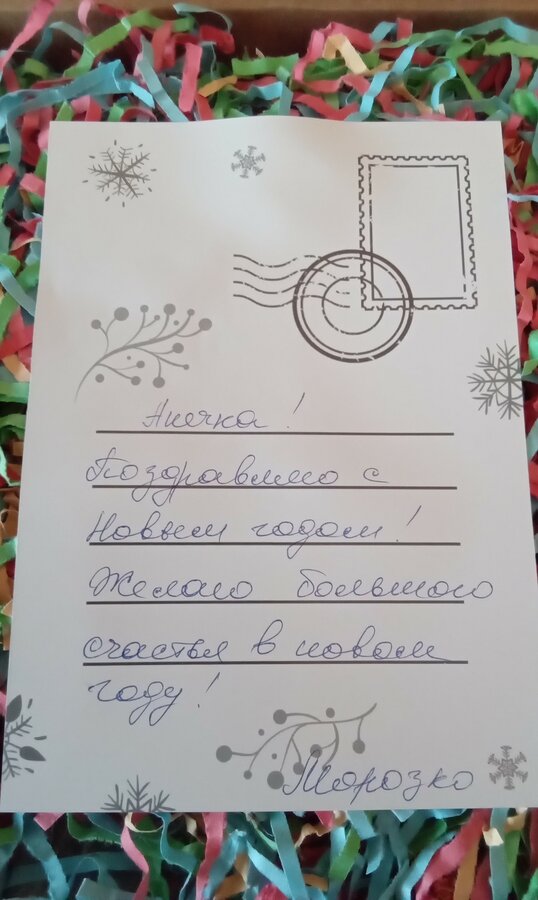 Анечка!
Поздравляю с
Новым годом!
Желаю большого
счастья в новом
году!
Морозко